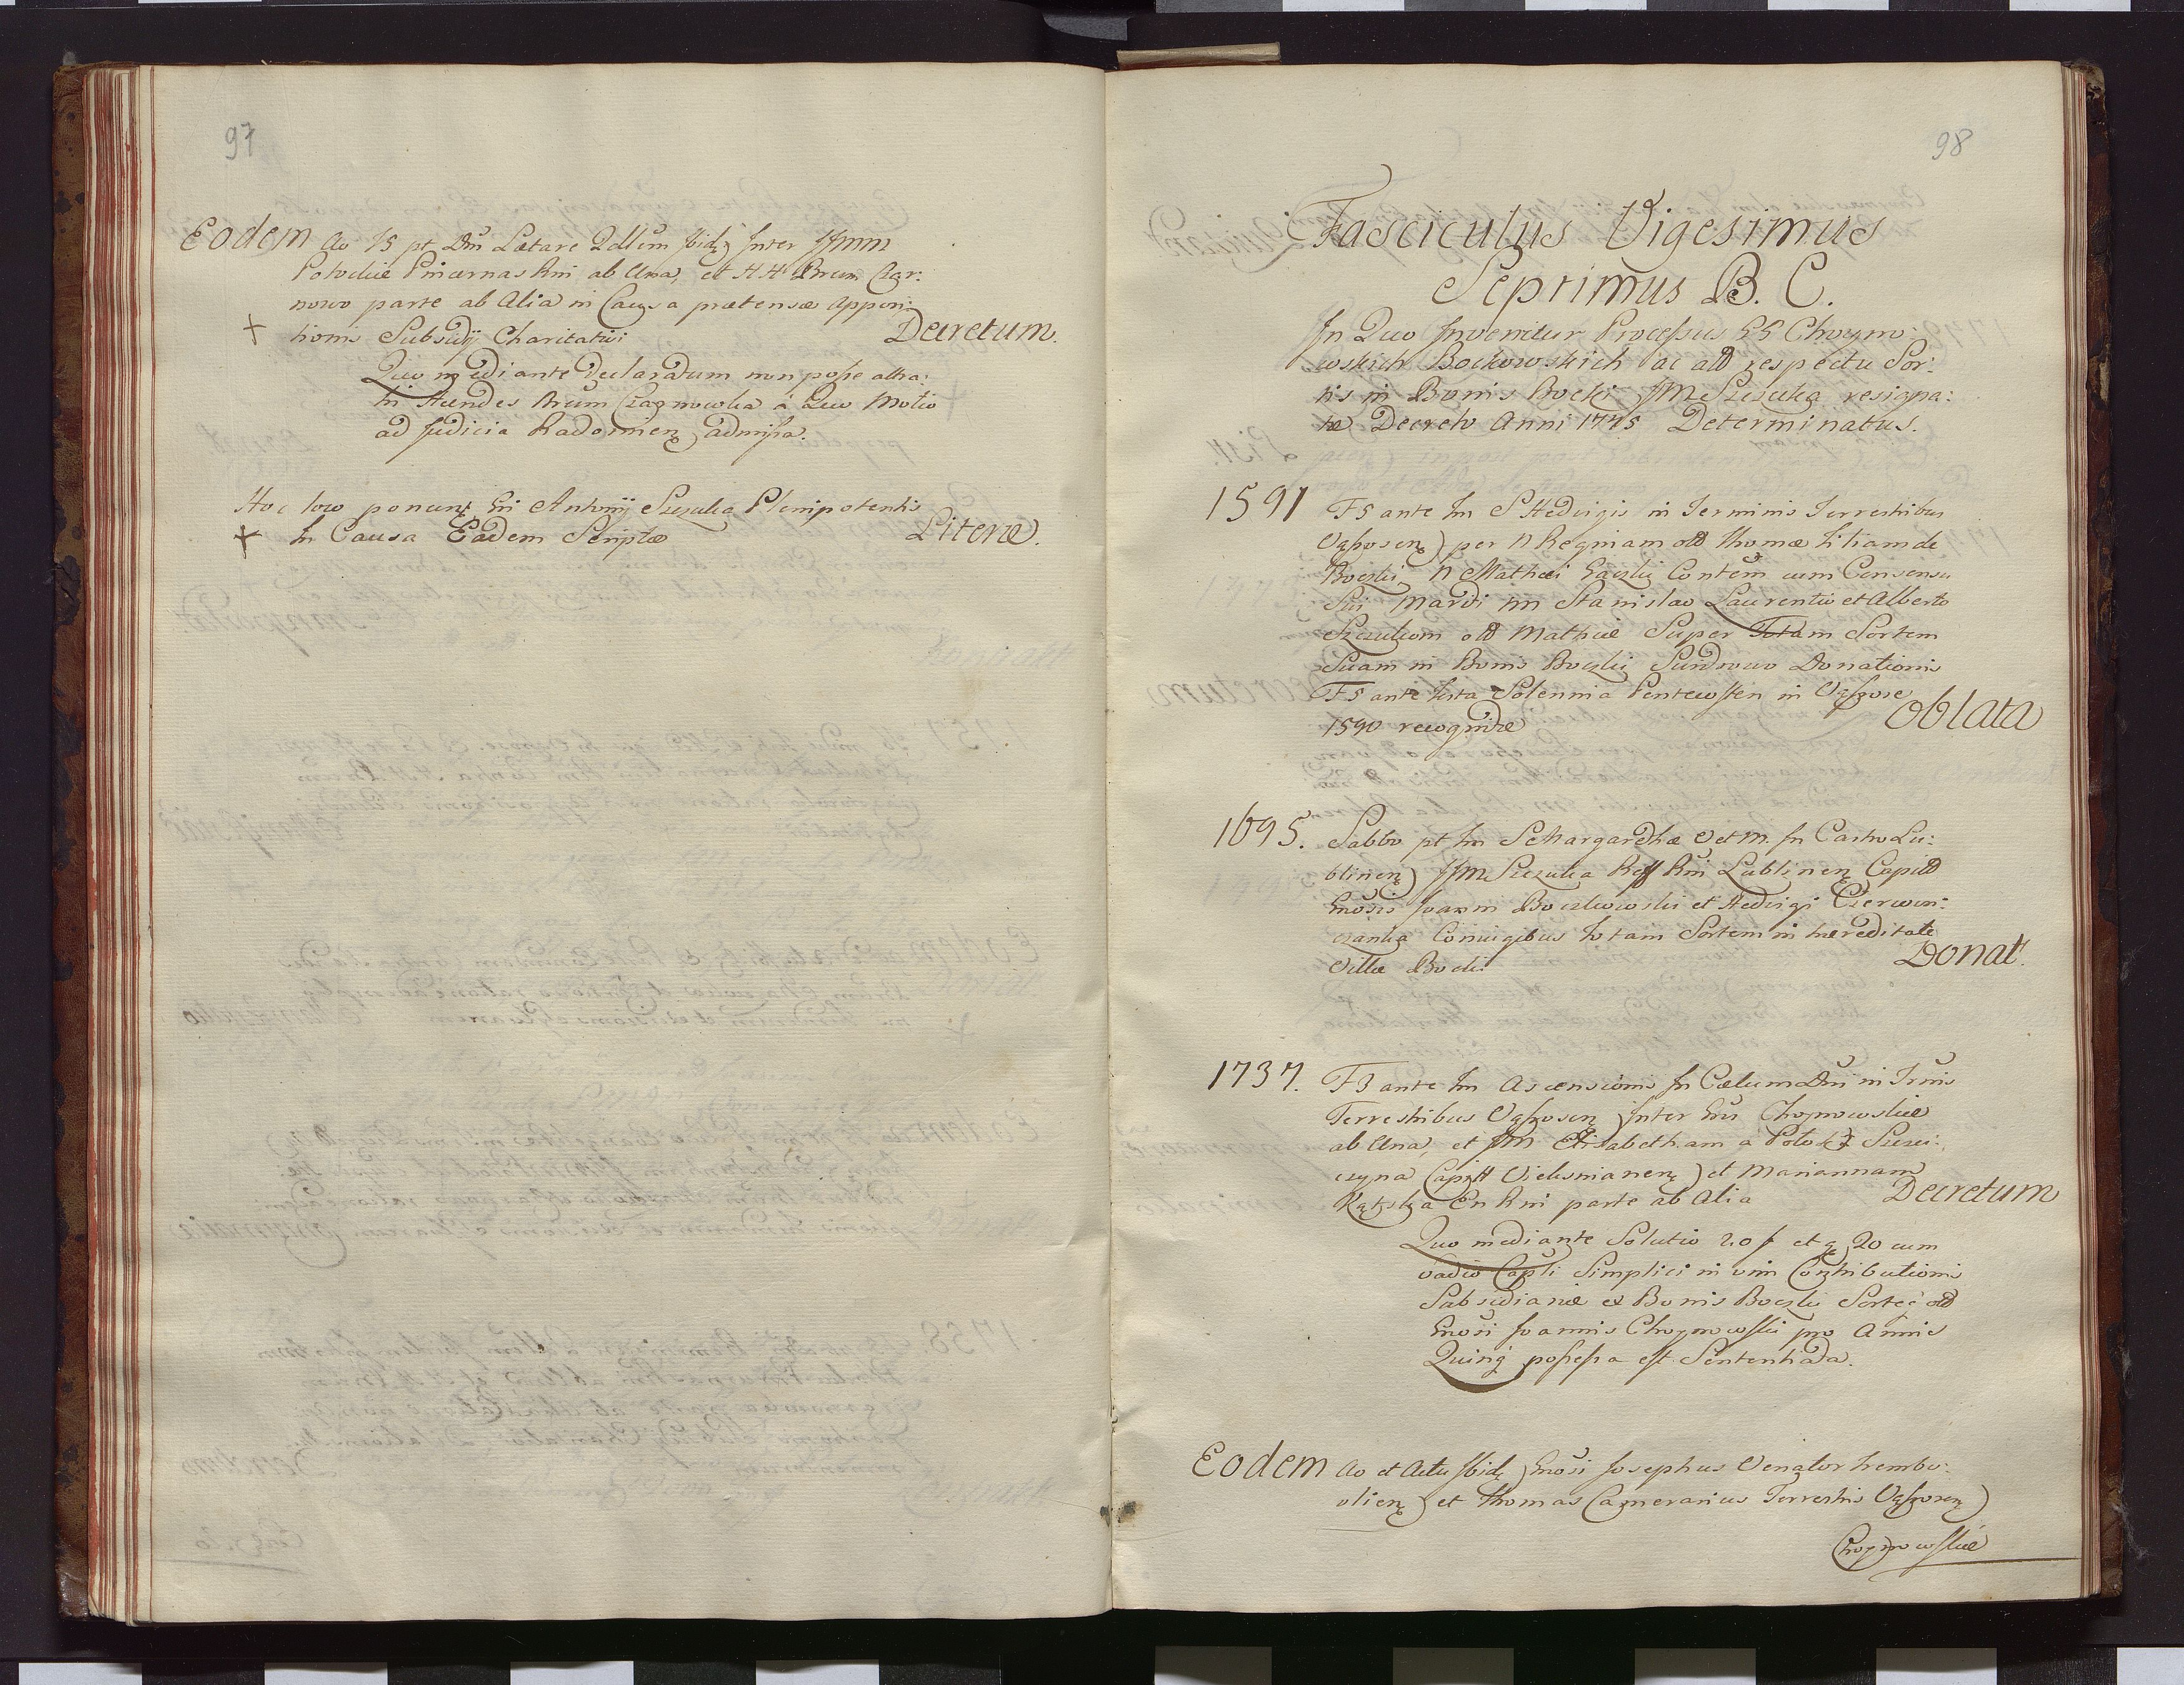 97
Eodem Ao 15 pt Dm Lætare Qdllum Ibidę Inter JJmm
Potockie Pincernas Rni ab Una, et H.H. Brum Czar:
nowo parte ab Alia in Causa prætensæ apposi:
+ tionis Subsidij Charitativi Decretum.
Quo mediante Declaratum non posse attra:
hi Hæredes Brum Czarnowka à Quo Motio
ad Judicia Radomienę admissa.
Hoc loco ponunt Gñi Antonij Szczuka Plenipotentis
+ In Causa Eadem Scriptæ Literæ.
98
Fasciculus Vigesimus
Septimus B. C.
In Quo Invenitur Processus GG Choyno:
wskich Boćkowskich ac old respectu Sor:
tis in Bonis Boćki JM Szczuka resigna:
tæ Decreto Anni 1775 Determinatus.
1591 F5 ante Fm S Hedvigis in Terminis Terrestribus
Vąsosienę per N Reginam old Thomæ Filiam de
Boczki N Mathæi Gaczki Contem cum Consensu
Sui Mardi NN Stanislao Laurentio et Alberto
Szczukom old Mathiæ Super Totam Sortem
Suam in Bonis Boczki Sundowo Donationis
F5 ante Festa Solennia Pentecosten in Vąssose
1590 recognitæ Oblata
1695. Sabbo pt Fm S Margarethæ V et M. In Castro Lu:
blinenę JJM Szczuka Reff Rni Lublinenę Capitt
Gnosis Joanni Boczkowski et Hedvigi Czerwon:
czanka Coniugibus totam Sortem in hæreditate
Villæ Boćki Donat.
1737. F3 ante Fm Ascensionis In Cælum Dni in Trnis
Terrestribus Vąssosienę Inter Gñs Choynowskie
ab Una, et JM Elisabetham à Potock: Szczu:
czyna Capitt Vielunianenę et Mariannam
Kątska En Rni parte ab Alia Decretum
Quo mediante Solutio 20 f et g 20 cum
vadio Capli Simplici in vim Contributionis
Subsidianæ ex Bonis Boczki Sorteq old
Gnosi Joannis Choynowski pro Annis
Quinq possessa est Sententiada.
Eodem Ao et Actu Ibidę Gnosi Josephus Venator Trembo:
vlienę et Thomas Camerarius Terrestris Vąssosienę
Choynowskie